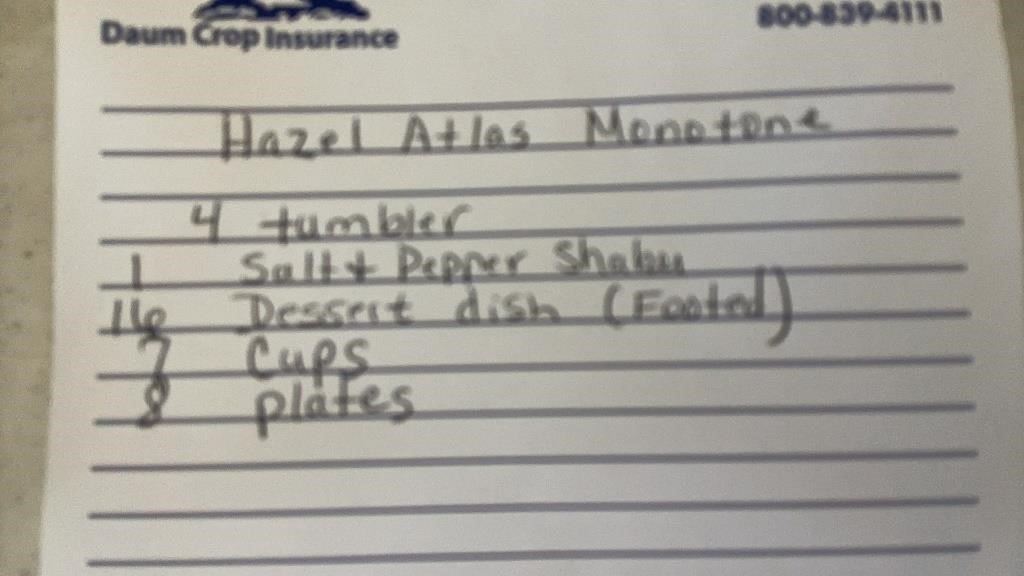 Daum Crop Insurance
800-839-4111
Hazel Atlas Monotone
4 tumbler
1 Salt + Pepper Shaker
16 Dessert dish (Footed)
7 Cups
8 plates